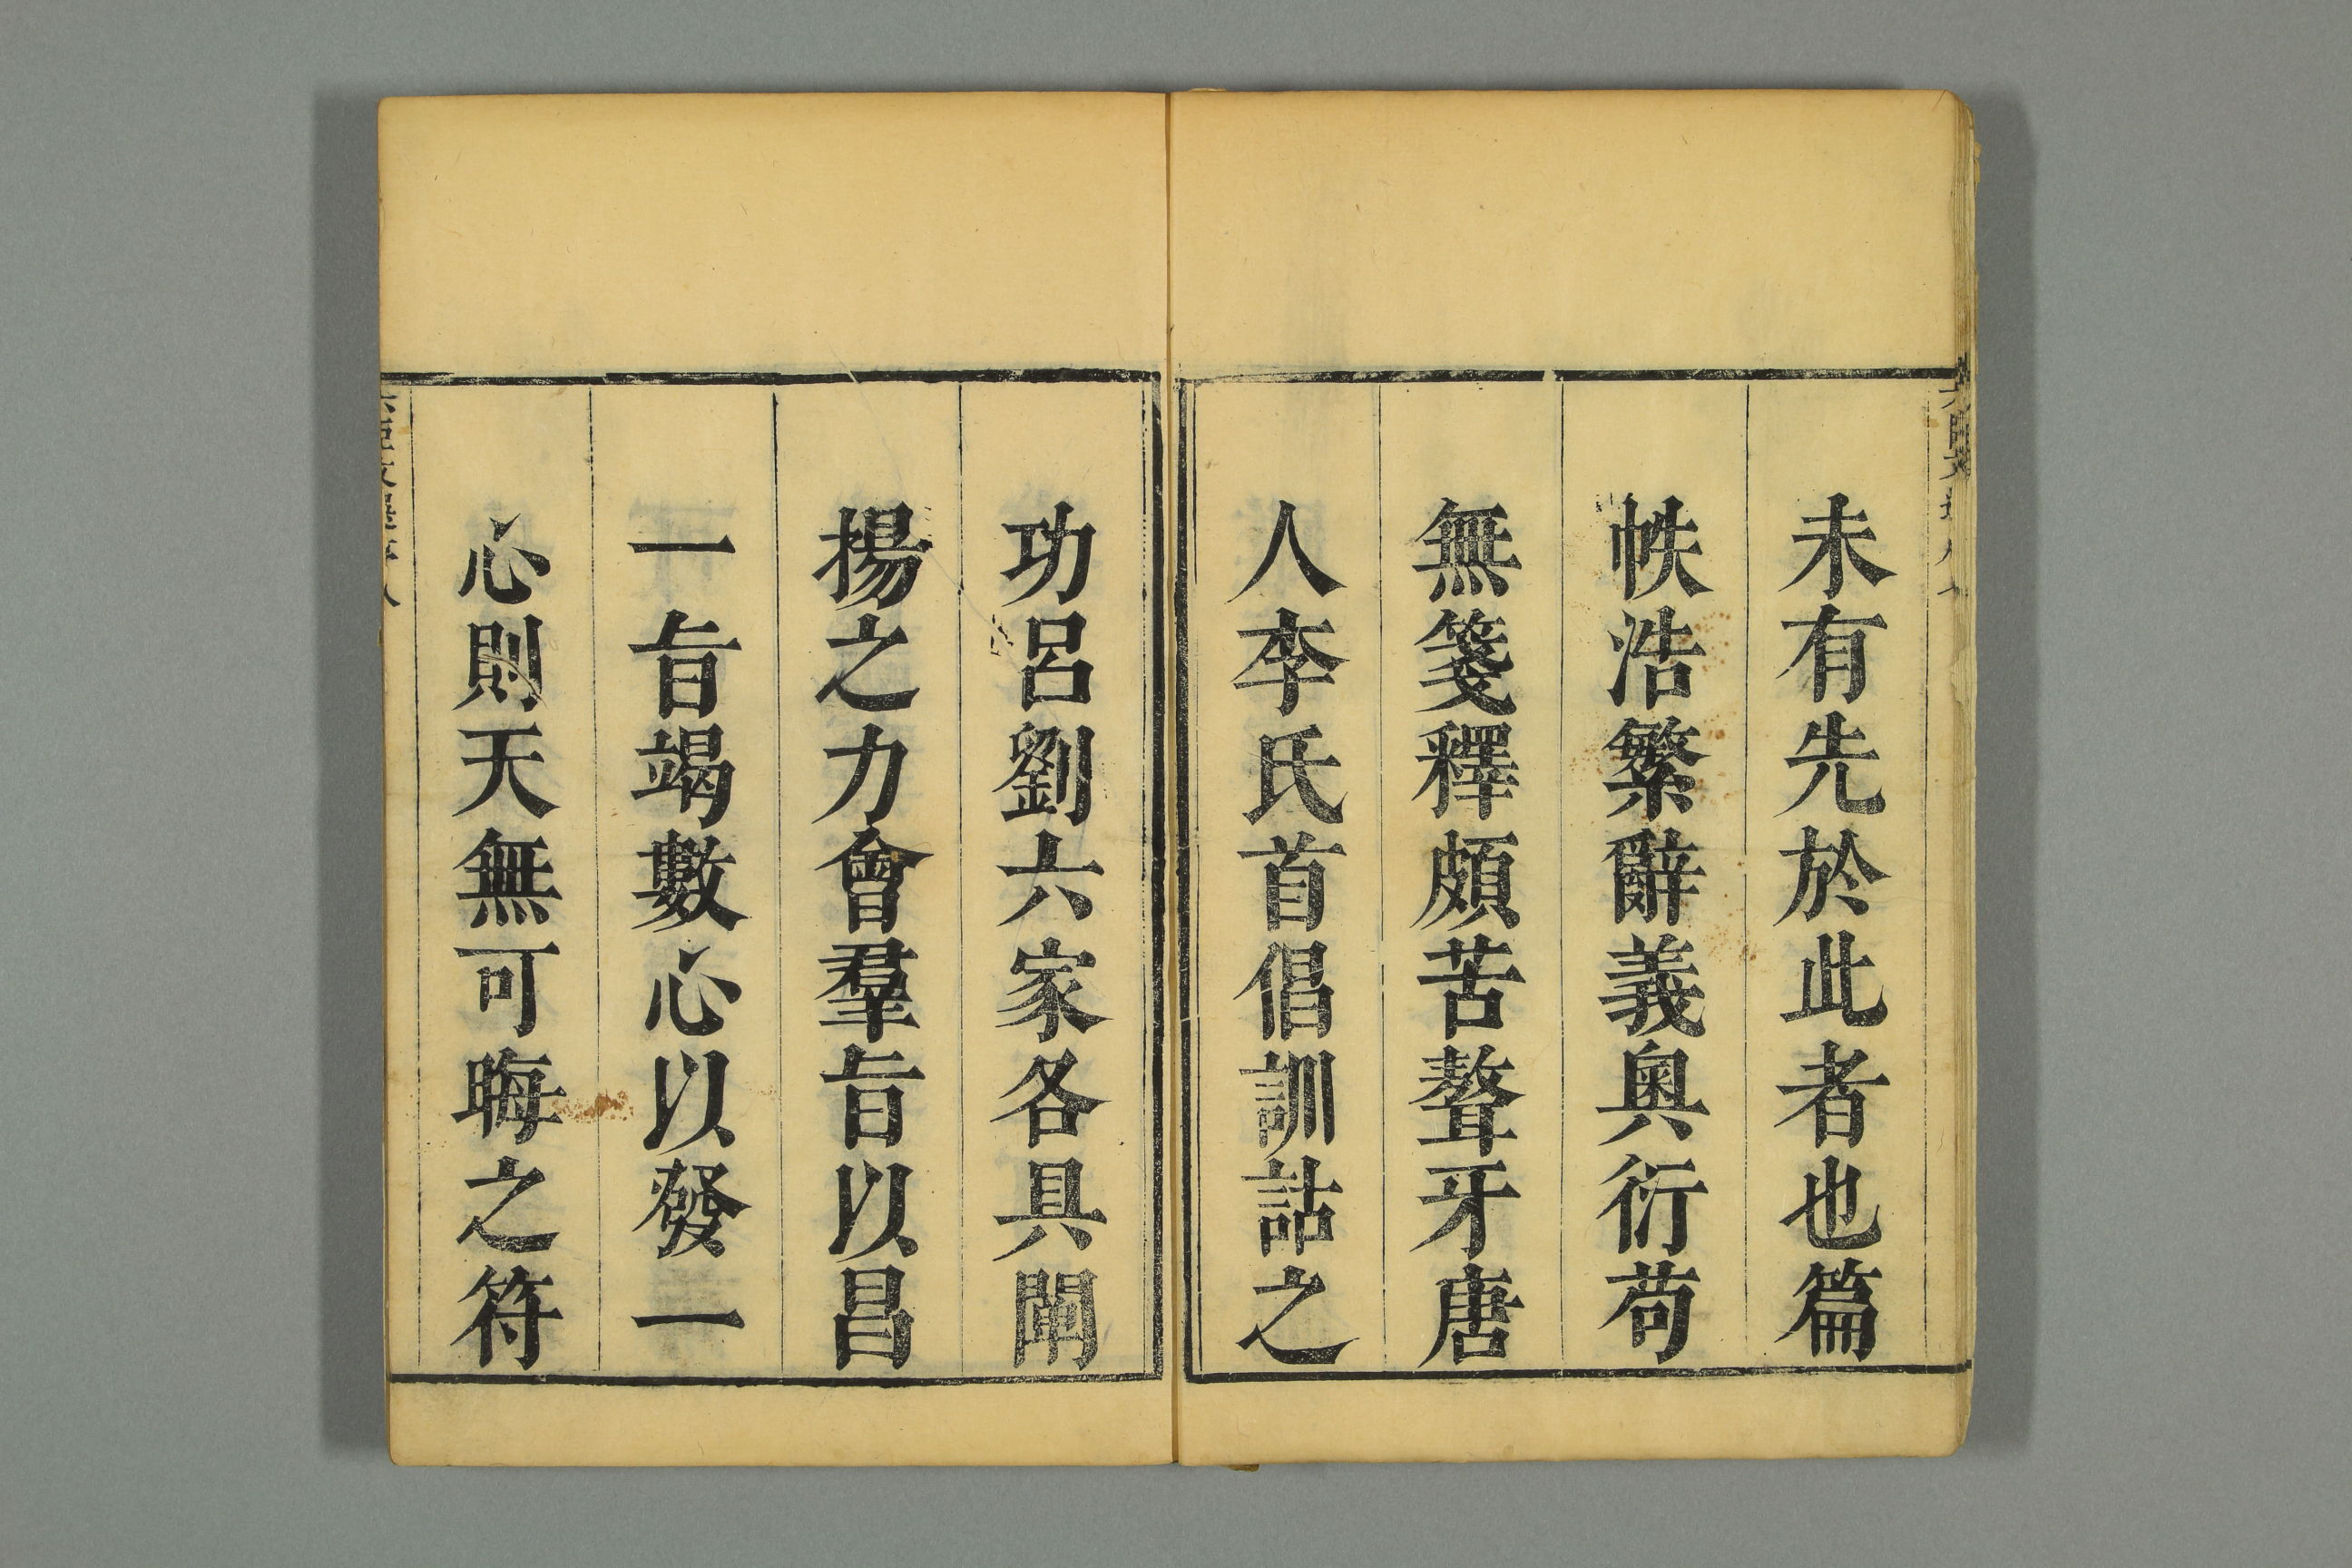 未有先於此者也篇
帙浩繁辭義奧衍苟
無箋釋頗苦聱牙唐
人李氏首倡訓詁之
功呂劉六家各具闡
揚之力會羣旨以昌
一旨竭數心以發一
心則天無可晦之符